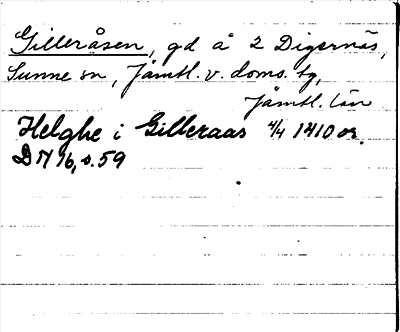 Gilleråsen, gd å 2 Digernäs,
Sunne sn, Jämtl. v. doms. tg,
Jämtl. län
Helghe i Gilleraas 4/4 1410 or.
DN 16, s. 59